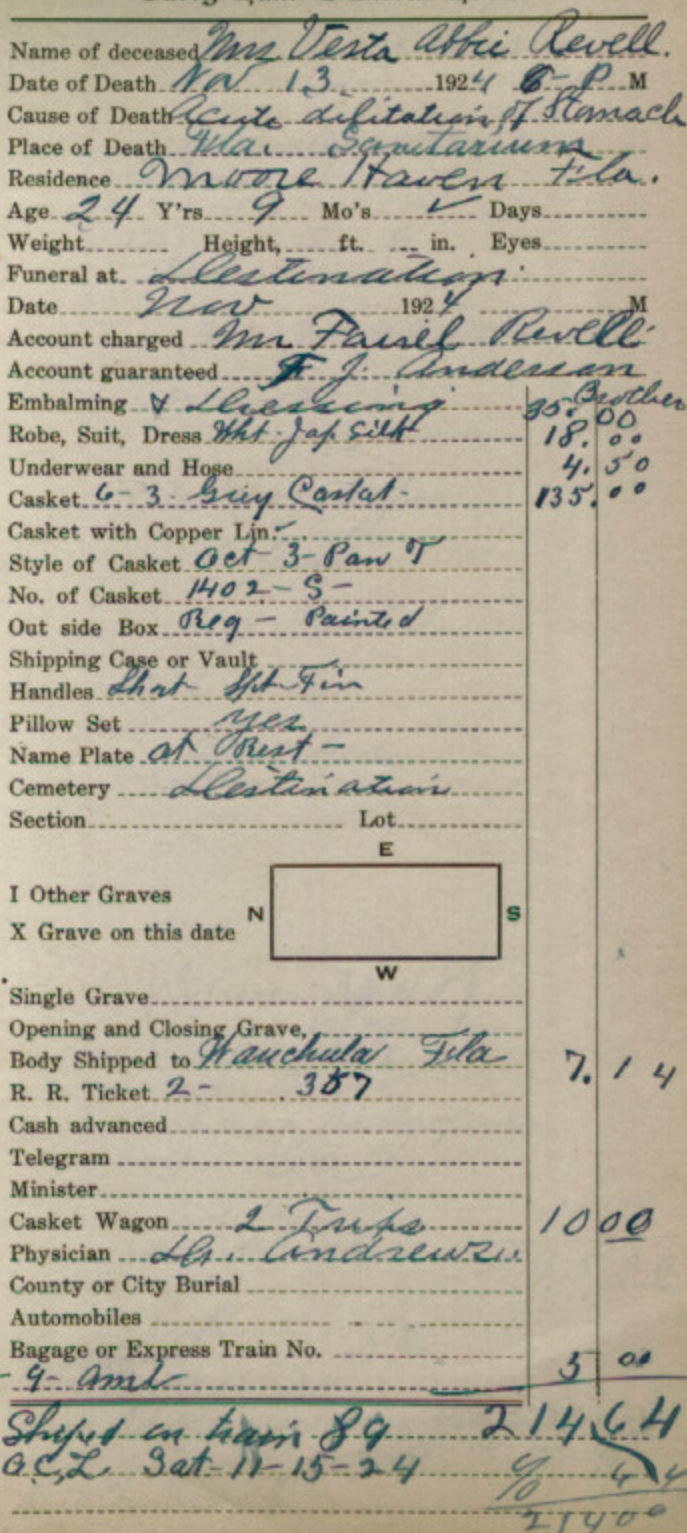 Name of deceased Mrs Vesta Abbie Revell.
Date of Death Nov 13 1924 6-P M
Cause of Death Acute dilitation of Stomach
Place of Death Fla. Sanitarium
Residence Moore Haven Fla.
Age 24 Y'rs 9 Mo's ✓ Days
Weight Height, ft. in. Eyes
Funeral at Destination
Date Nov 1924 M
Account charged Mr Revell
Account guaranteed F J. Anderson
Brother
Embalming & Dressing 35.00
Robe, Suit, Dress Wht Jap Silk 18.00
Underwear and Hose 4.50
Casket 6-3 Grey Casket- 135.00
Casket with Copper Lin.
Style of Casket Oct 3-Pan T
No. of Casket 1402-S-
Out side Box Reg - Painted
Shipping Case or Vault
Handles Shot Fin
Pillow Set Yes
Name Plate At Rest -
Cemetery Destination
Section Lot
E
I Other Graves
N S
X Grave on this date
W
Single Grave
Opening and Closing Grave,
Body Shipped to Wauchula Fla 7.14
R. R. Ticket 2- 357
Cash advanced
Telegram
Minister
Casket Wagon 2 Trips 10 00
Physician Dr. Andrews
County or City Burial
Automobiles
Bagage or Express Train No.
9- Aml 5 00
Shiped on train 89 214.64
A.C.L. Sat-11-15-24 % 64
21400